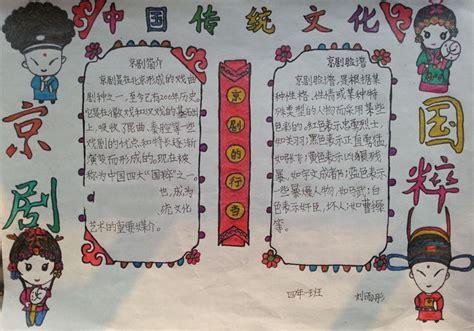 中国传统文化
京剧
京剧简介
京剧是在北京形成的戏曲
剧种之一，至今已有200年历史。
它是在徽戏和汉戏的基础
上，吸收了昆曲、秦腔等一些
戏剧的优点和特长逐渐
演变而形成的。现在被
称为中国四大"国粹"之一。
也，成为
统文化
艺术的重要媒介。
京剧的行当
京剧脸谱
京剧脸谱，是根据某
种性格、性情或某种特
殊类型的人物而采用某些
色彩的。红色表示忠勇烈士，
如关羽；黑色表示正直勇猛，
如张飞；黄色表示凶狠残
暴，如宇文成都；蓝色表示
一些暴燥人物，如马武；白
色表示奸臣，坏人，如曹操
等。
国粹
四年一班